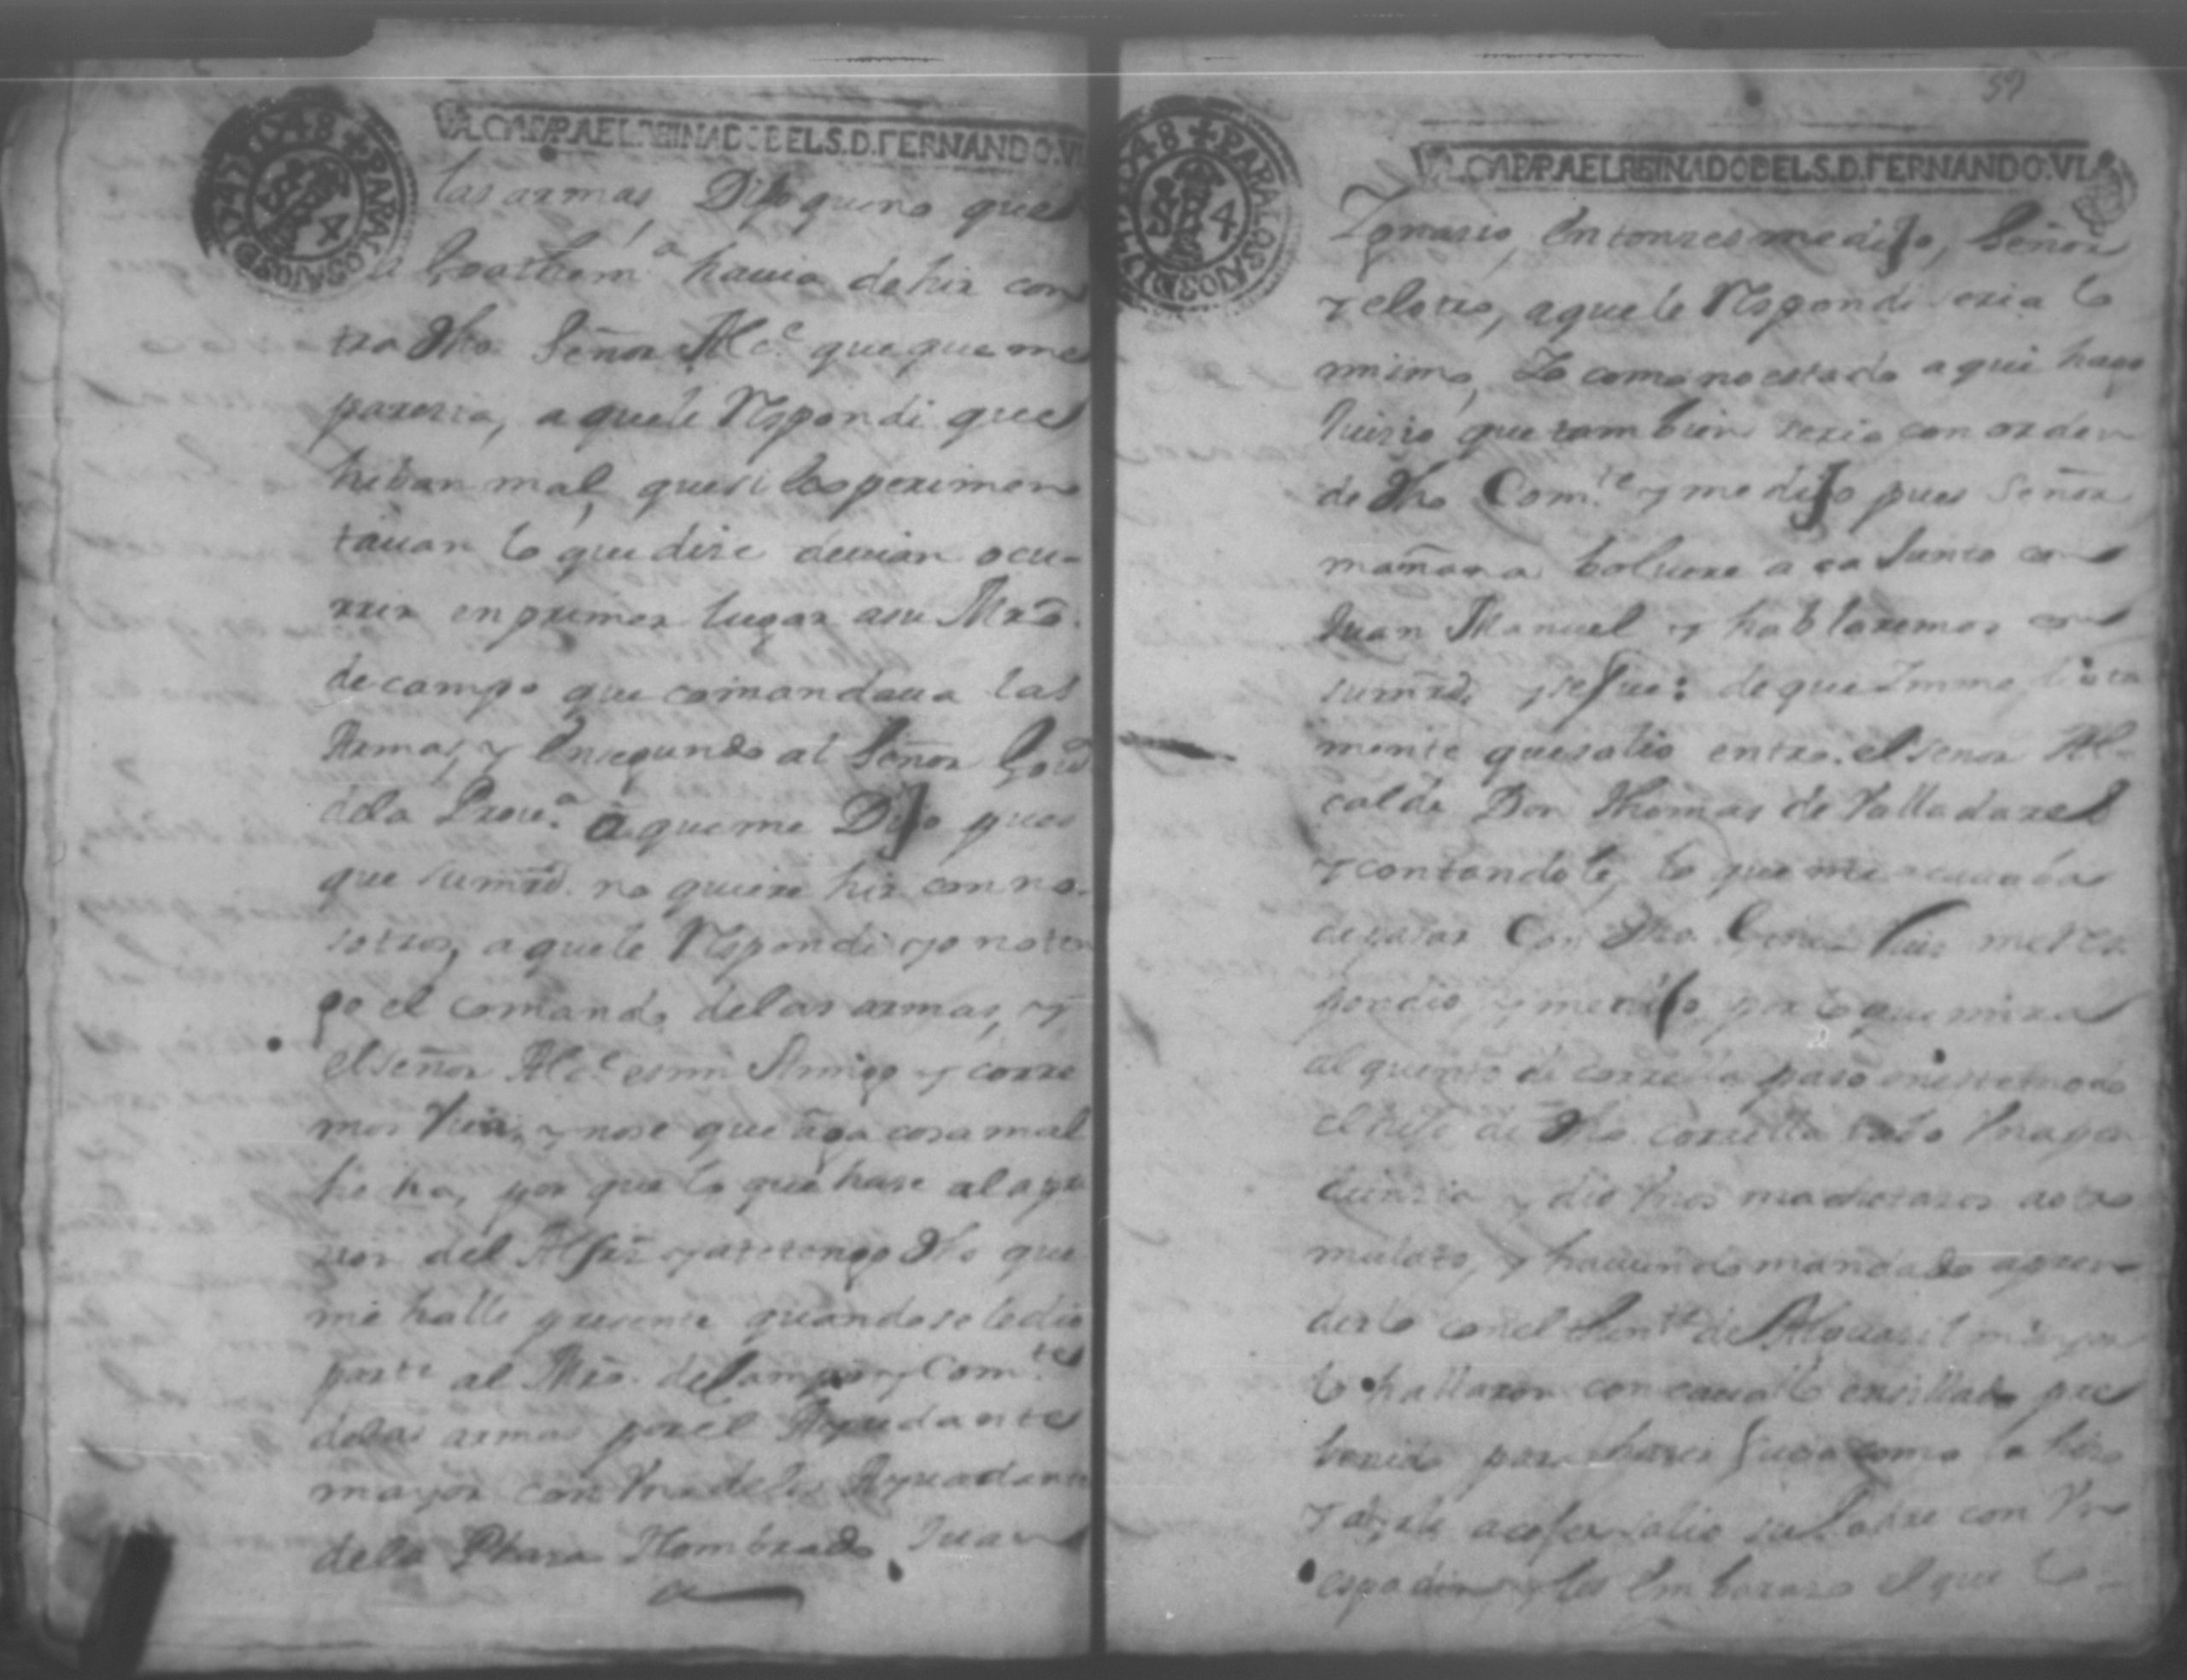 VALGA PARA EL REINADO DEL S. D. FERNANDO. VI
las armas, Dijo queno que
a Goathem.ª hauia dehir con
tra dho Señor Alc.e queque me
paresia, aquele Respondi que
hiban mal, quesi Esperimen
tauan lo que dise deuian ocu-
rrir enprimer lugar asu Mro.
de campo que comandaua las
Armas, y Ensegundo al Señor Gov.or
dela Prov.a a queme Dijo pues
que sumrd. no quiere hir conno-
sotros, aquele Respondi yo noten
go el comando delas armas, y
elseñor Alc.e esmi Amigo y corre
mos bien, y nose que aga cosa mal
hecha, por que lo que hase al
del Alferes ya tengo dho que
me halle presente quando se le dio
parte al Mro. deCampo y Com.te
delas armas porel Ayudante
mayor con Uno delos Ayudantes
dela Plaza Nombrado Juan
59
VALGA PARA EL REINADO DEL S. D. FERNANDO. VI
Ignasio, Entonses medijo, Señor
y elotro, aquele Respondi seria lo
mismo, Yo como no estado aqui hago
Juisio que tambien seria con orden
de dho Com.te y me dijo pues Señor
mañana boluere aca Junto con
Juan Manuel y hablaremos con
sumrd. y se fue: de que Immediata
mente quesalio entro el señor Al-
calde Don Thomas de Valladares
y contandole, lo que me acauaba
de pasar Con dho me res-
pondio, y me dijo, por lo que mira
al quento de corrella paso en este modo
dho corrella
y dio Unos machetasos aotro
mulato, y hauiendo mandado apren-
derlo conel Then.te de Alguasil mayor
lo hallaron con cauallo ensillado pre
benido para haser fuga como lo hiso
y salio su Padre con Un
espadin y les Embaraso el que lo